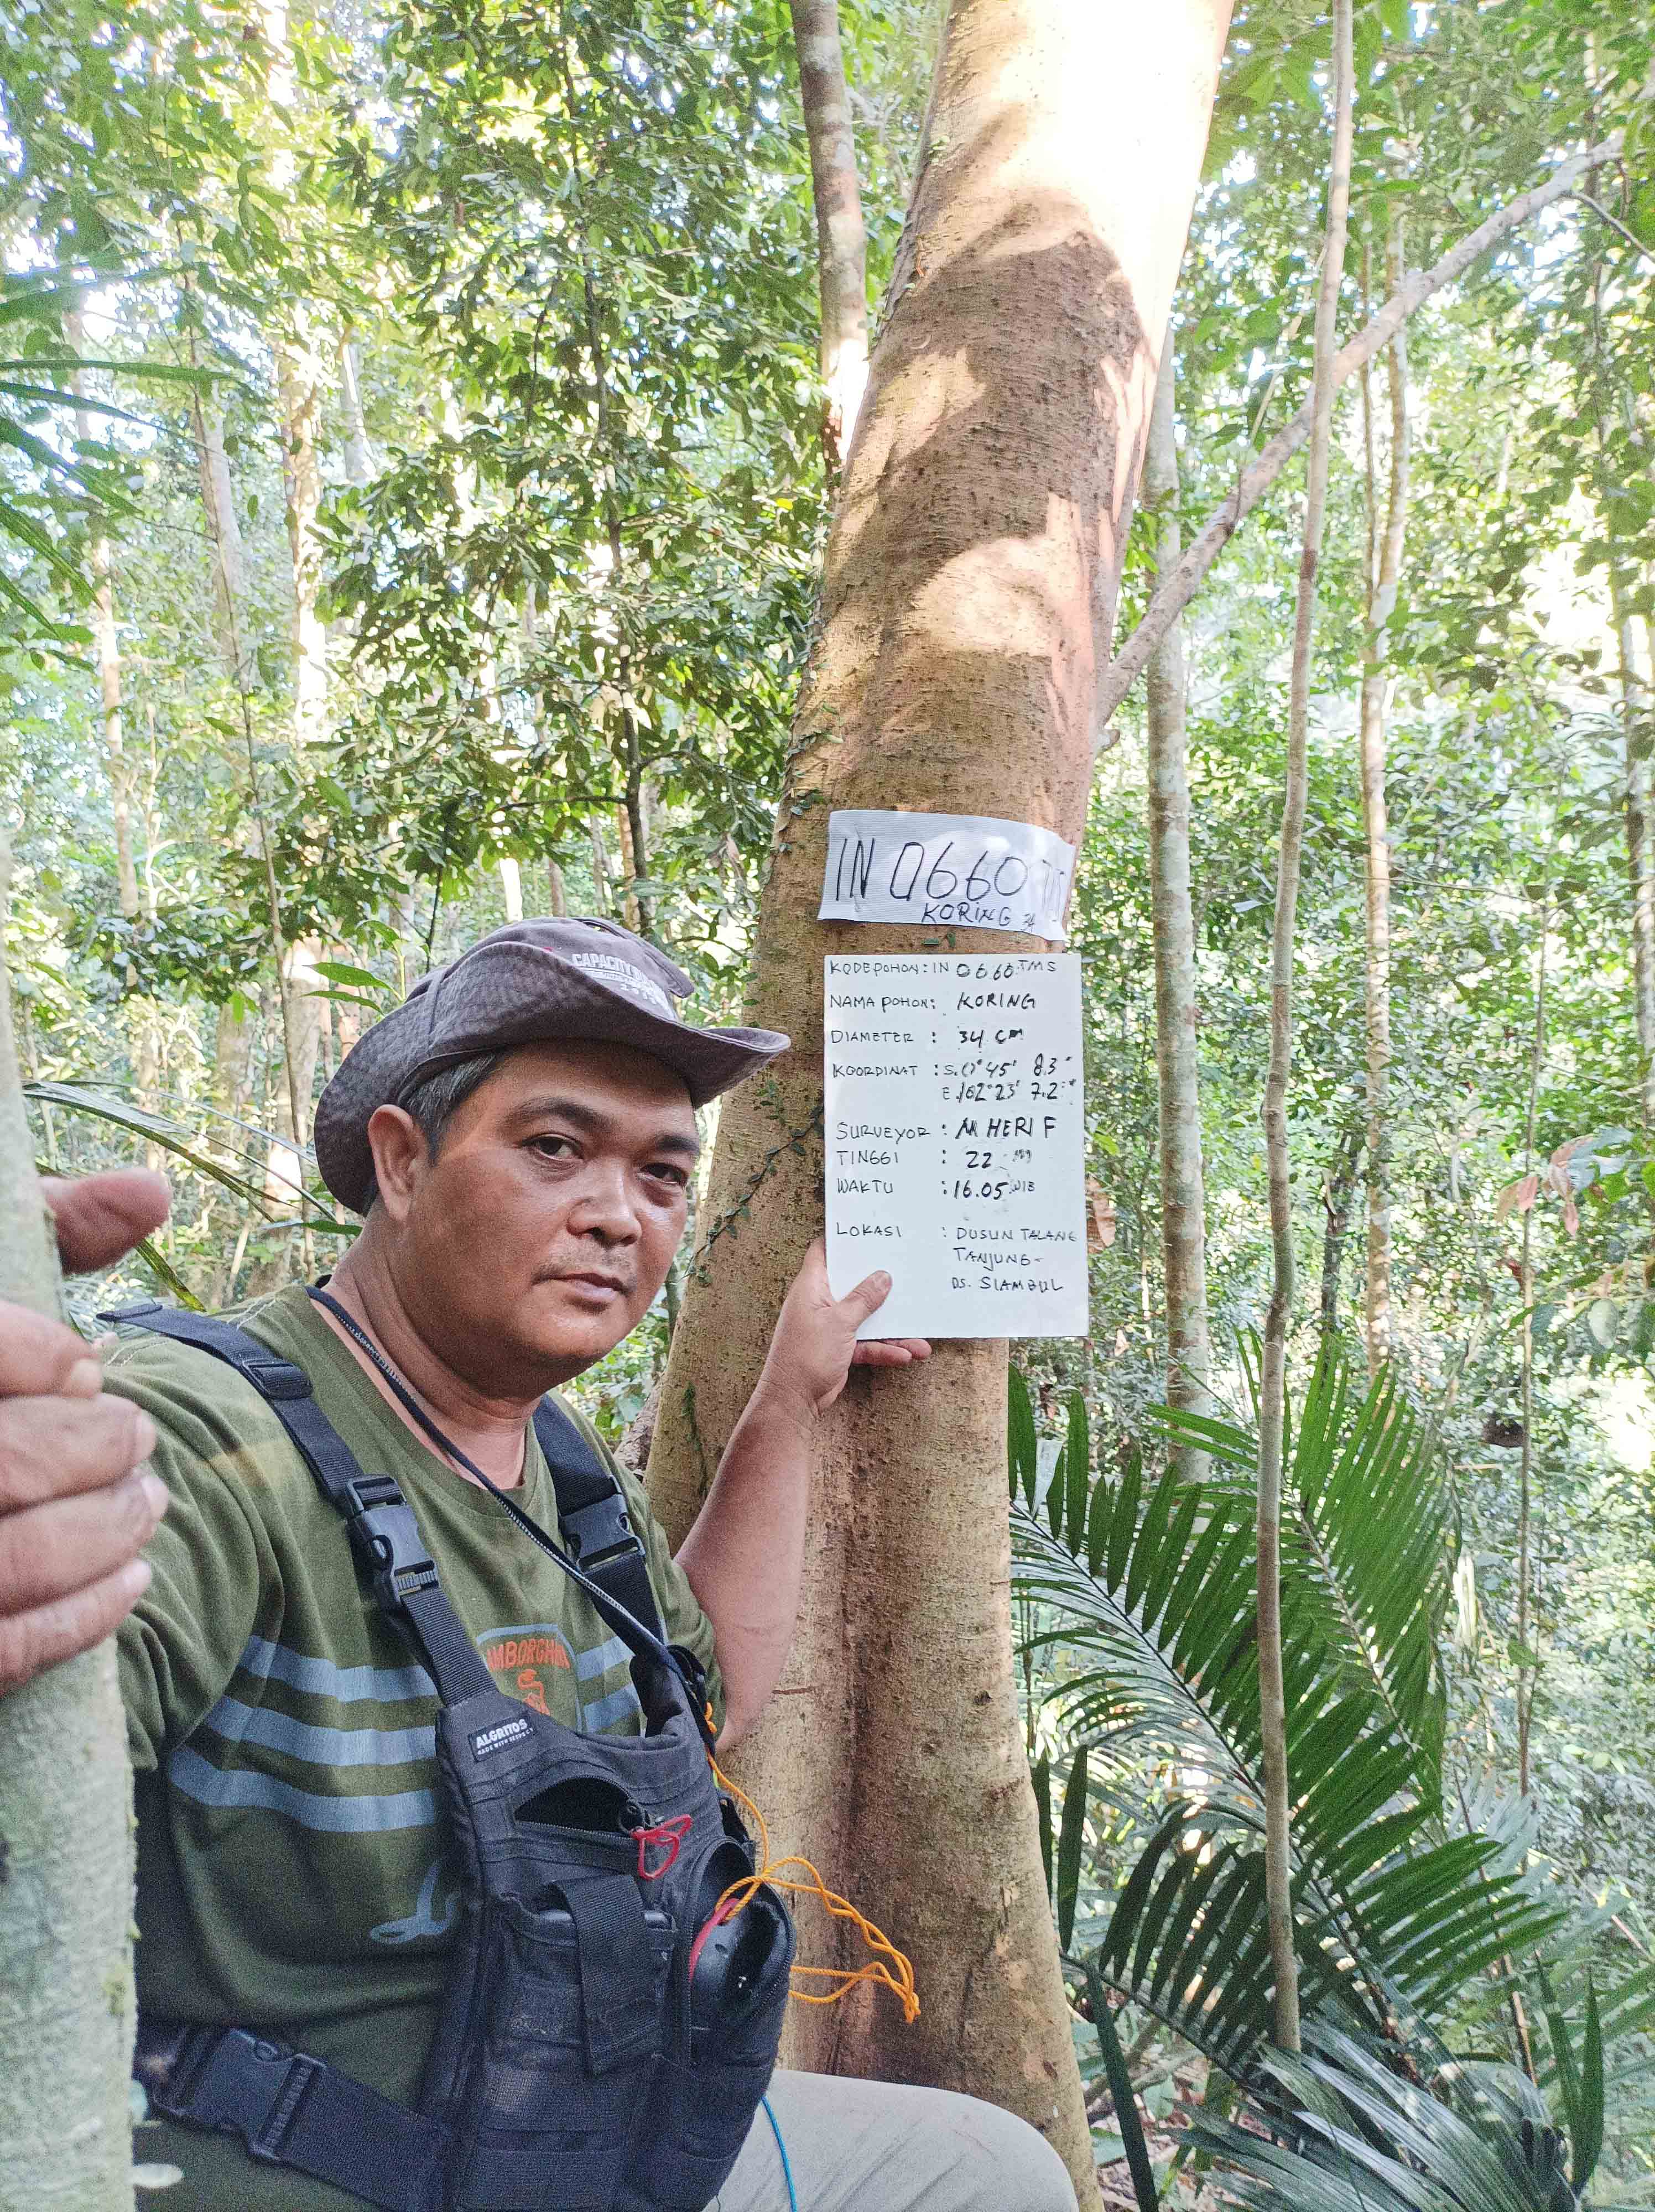 IN 0660
KORING 34
KODE POHON : IN 0660 TMS
NAMA POHON : KORING
DIAMETER : 34 CM
KOORDINAT : S. 0° 45' 8.3"
E. 102° 23' 7.2"
SURVEYOR : M HERI F
TINGGI : 22 M
WAKTU : 16.05 WIB
LOKASI : DUSUN TALANG
TANJUNG -
DS. SIAMBUL
ALGRITOS
MADE WITH RESPECT